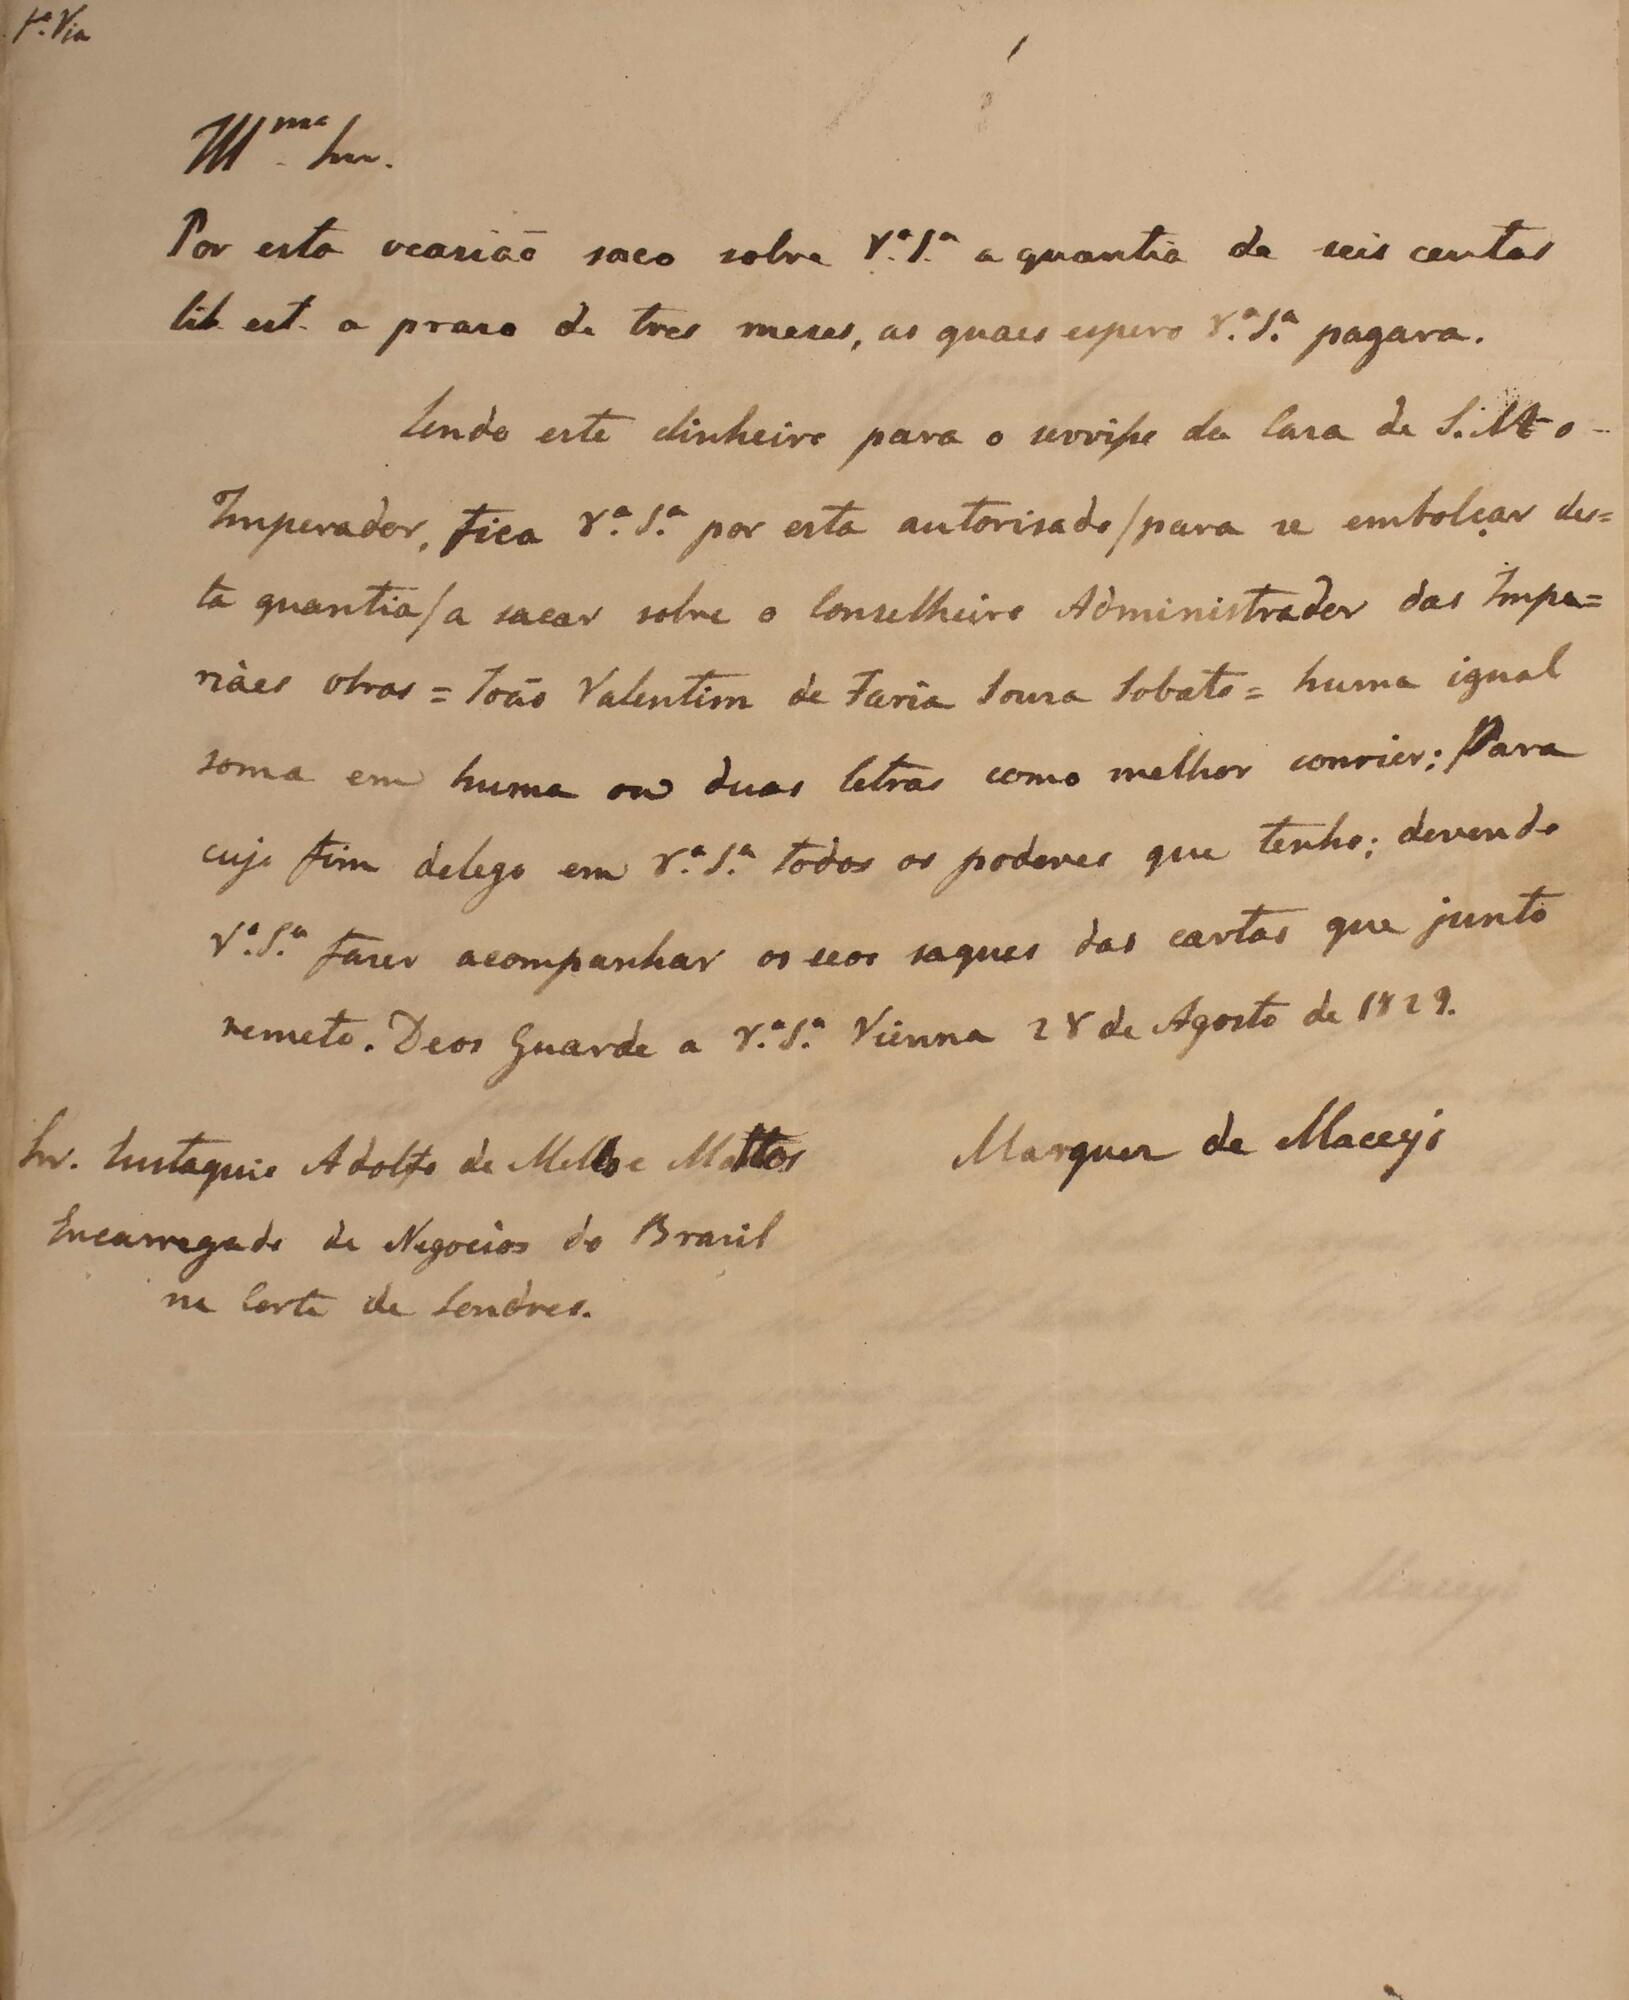 1ª Via
Illmo Snr.
Por esta ocasião saco sobre Vª. Sª. a quantia de seis centas
lib. est. a praso de tres meses, as quaes espero Vª. Sª. pagara.
Sendo este dinheiro para o serviço da Casa de S. M. o
Imperador, fica Vª. Sª. por esta autorisado/para se embolçar des=
ta quantia/a sacar sobre o Conselheiro Administrador das Impe=
riàes obras = João Valentim de Faria Sousa Lobato = huma igual
soma em huma ou duas letras como melhor convier; Para
cujo fim delego em Vª. Sª. todos os poderes que tenho; devendo
Vª. Sª. faser acompanhar os seos saques das cartas que junto
remeto. Deos Guarde a Vª. Sª. Vienna 28 de Agosto de 1829.
Marques de Maceyó
Snr. Eustaquio Adolfo de Mello e Mattos
Encarregado de Negocios do Brasil
na Corte de Londres.